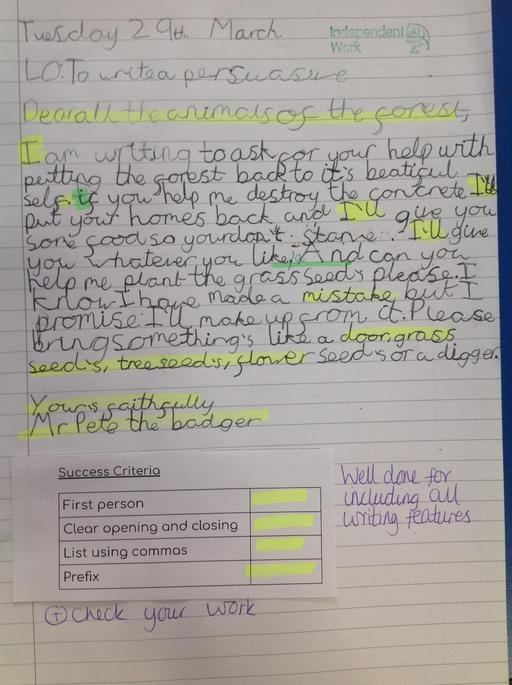 Tuesday 29th March
Independent
Work
LO. To write a persuasive
Dear all the animals of the forest,
I am writing to ask for your help with
petting the forest back to it's beatiful
self. if you help me destroy the concrete I'll
put your homes back and I'll give you
some food so your don't starve. I'll give
you whatever you like. And can you
help me plant the grass seed's please. I
know I have made a mistake but I
promise I'll make up from it. Please
bring something's like a door, grass
seed's, tree seed's, flower seed's or a digger.
Your's faithfully
Mr Pete the badger
Success Criteria
First person
Clear opening and closing
List using commas
Prefix
Well done for
including all
writing features
+ check your work